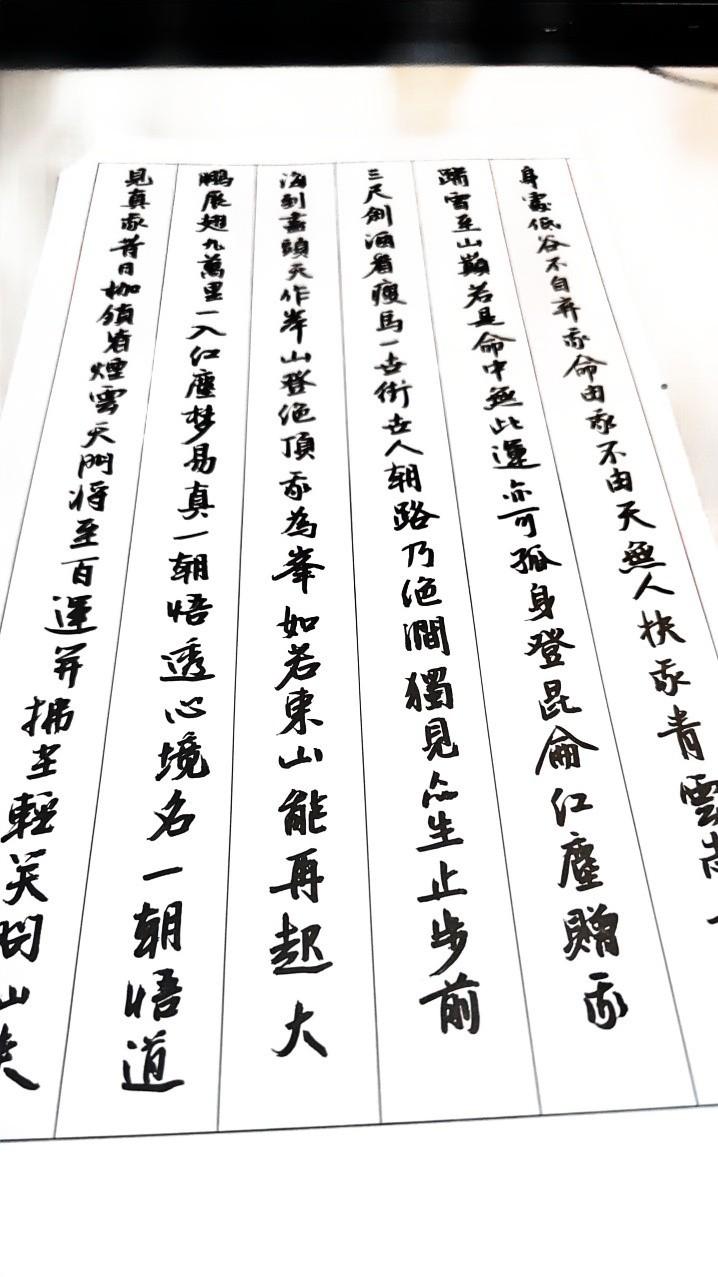 身處低谷不自弃我命由我不由天無人扶我青雲志
踏雪至山巔若是命中無此運亦可孤身登昆侖红塵贈我
三尺劍酒肴瘦馬一世街世人朝路乃绝澗獨見众生止步前
海到盡頭天作岸山登绝頂我為峯如若東山能再起大
鵬展翅九萬里一入红塵梦易真一朝悟透心境名一朝悟道
見真我昔日枷鎖皆煙雲天門将至百運开拂尘輕笑問山